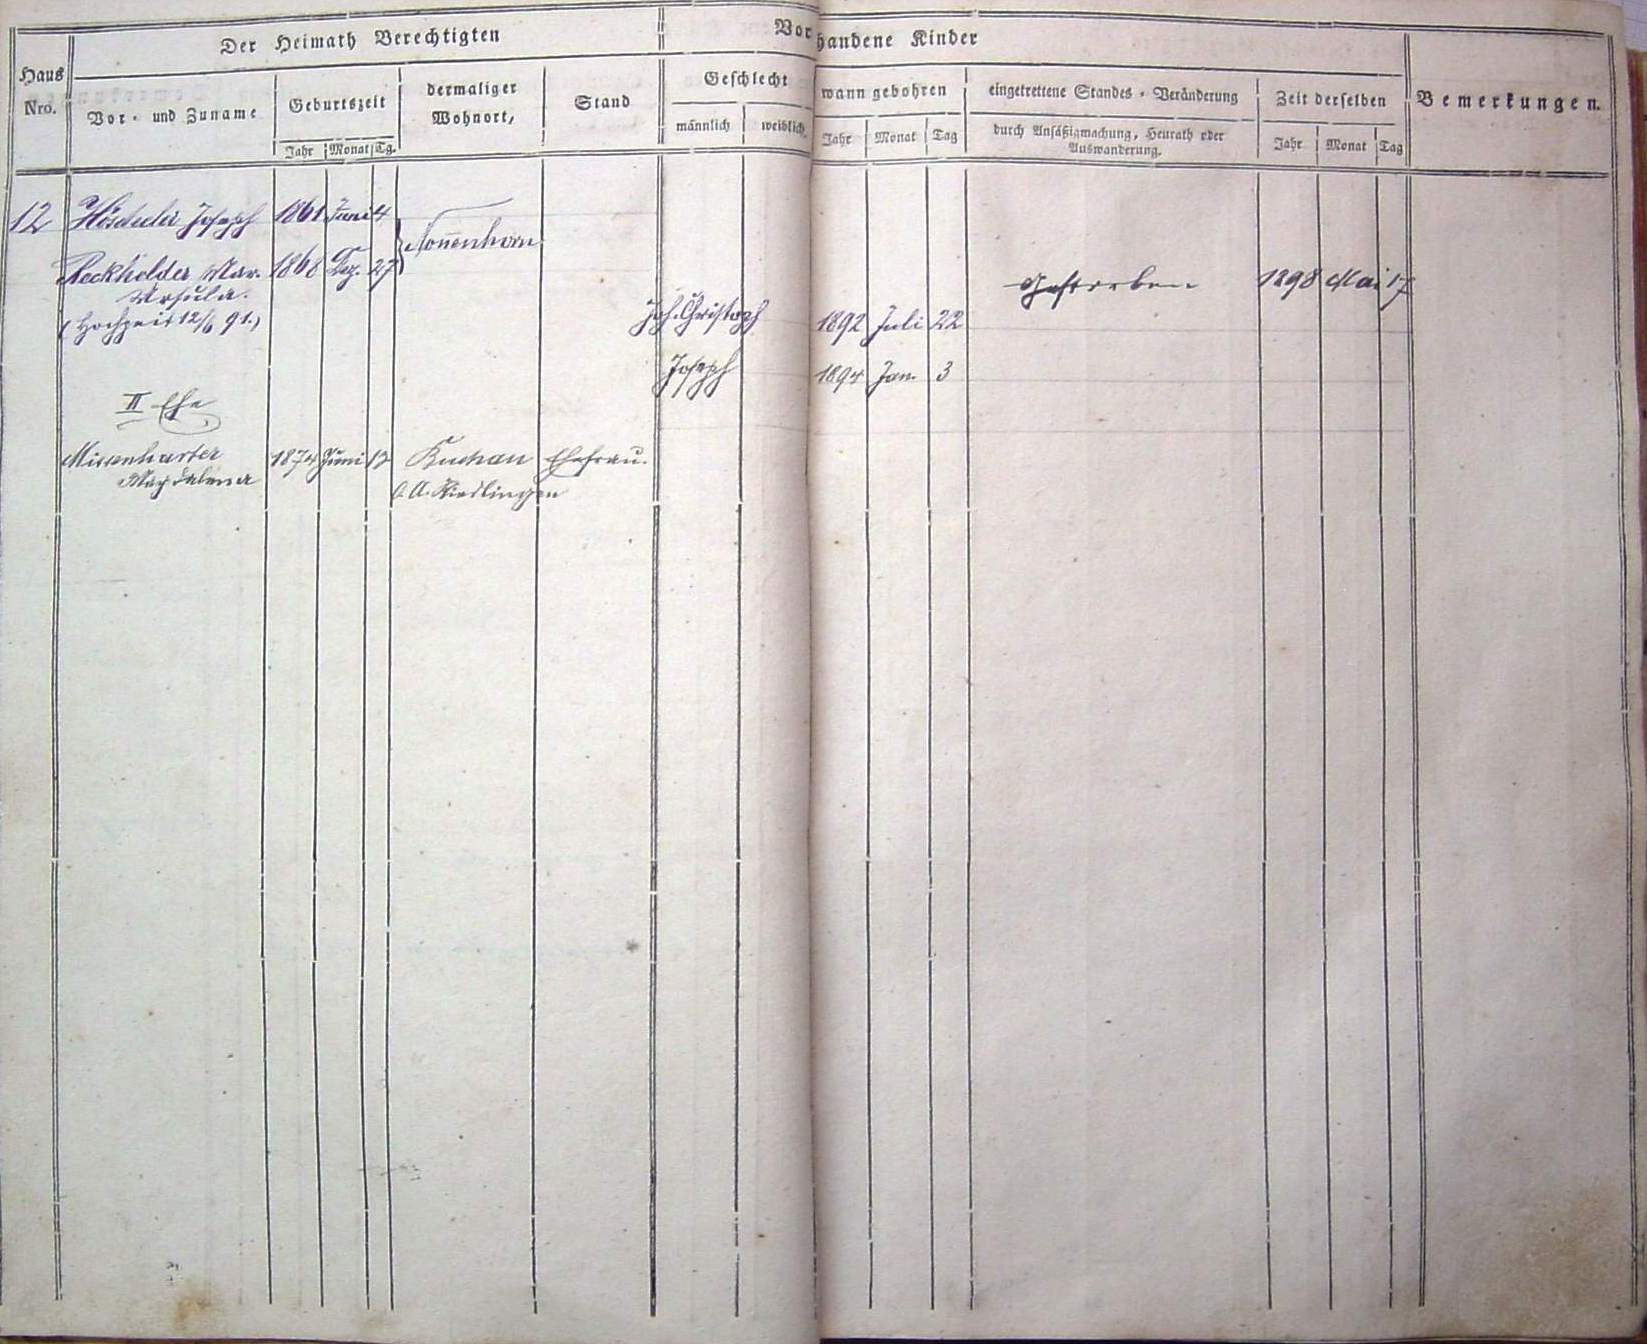 Der Heimath Berechtigten
Vorhandene Kinder
Haus
Nro.
Vor- und Zuname
Geburtszeit
dermaliger
Wohnort,
Stand
Geschlecht
wann gebohren
eingetrettene Standes-Veränderung
Zeit derselben
Bemerkungen.
Jahr Monat Tg.
männlich weiblich
Jahr Monat Tag
durch Ansäßigmachung, Heurath oder
Auswanderung.
Jahr Monat Tag
12 Joseph 1861 Juni 4
Nonnenhorn
Mar. 1868 Dez. 27
Gestorben 1898 Mai 17
Ursula.
(Hochzeit 12/6 91.)
Joh. Christoph 1892 Juli 22
Joseph 1894 Jan. 3
II Ehe
Missenharter 1874 Juni 12 Ehefrau.
Magdalena O.A. Riedlingen